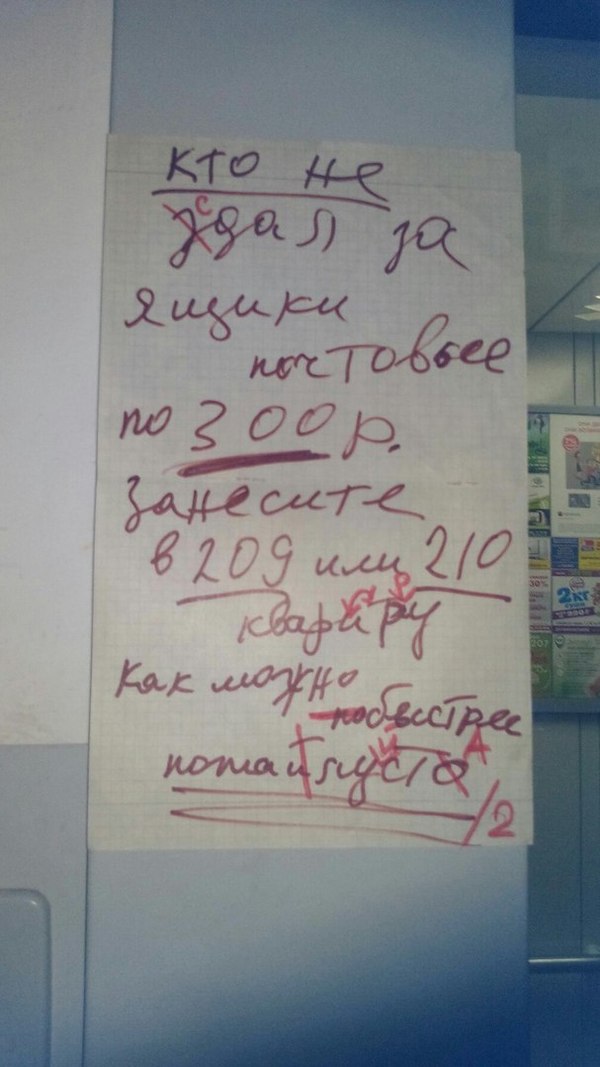 кто не
с
здал за
ящики
почтовые
по 300 р.
Занесите
в 209 или 210
квариру
как можно
побыстрее
пожайлуста
А
2
2кг
30%